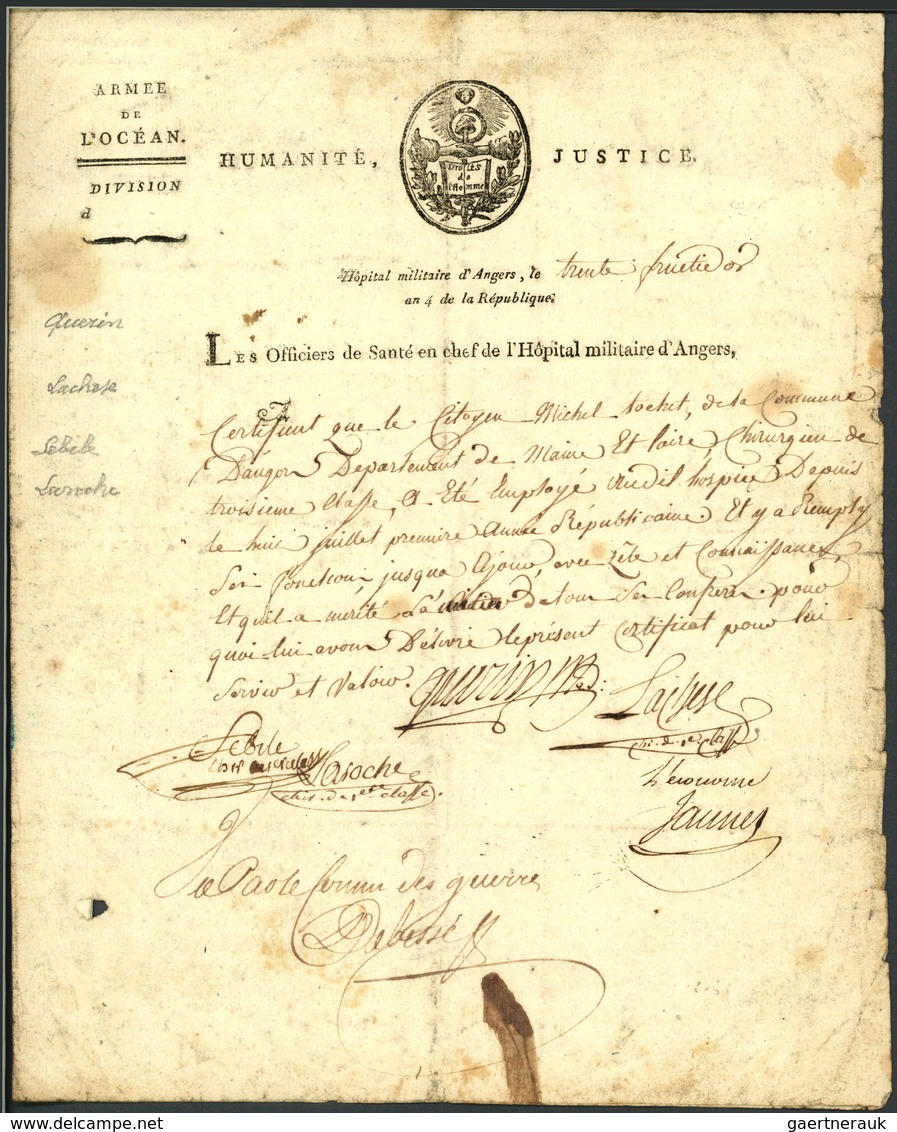 ARMÉE
DE
L'OCÉAN.
DIVISION
d
HUMANITÉ,
JUSTICE.
DROITS
de
l'Homme
Hôpital militaire d'Angers, le trente fructidor
an 4 de la République.
LES Officiers de Santé en chef de l'Hôpital militaire d'Angers,
Querin
Lachese
Sebile
Laroche
Certifient que le Citoyen Michel tochet, de la Commune
D'angers Departement de Maine Et Loire, Chirurgien de
troisieme Classe, A Eté Employé Audit hospice Depuis
le huit juillet premiere Année Républicaine. Et y a Remply
Ses fonctions jusqua Cejour, avec Zèle et Connaissances,
Et quil a merité de tous Ses Confreres. pour
quoi lui avons Délivré leprésent Certificat pour lui
Servir et Valoir.
querin Med:
Lachese
chi. de 1re Classe
Sebile
Laroche
chir. de 1ere classe
L'économe
Jaunes
des guerres
Debessé
gaertnerauk